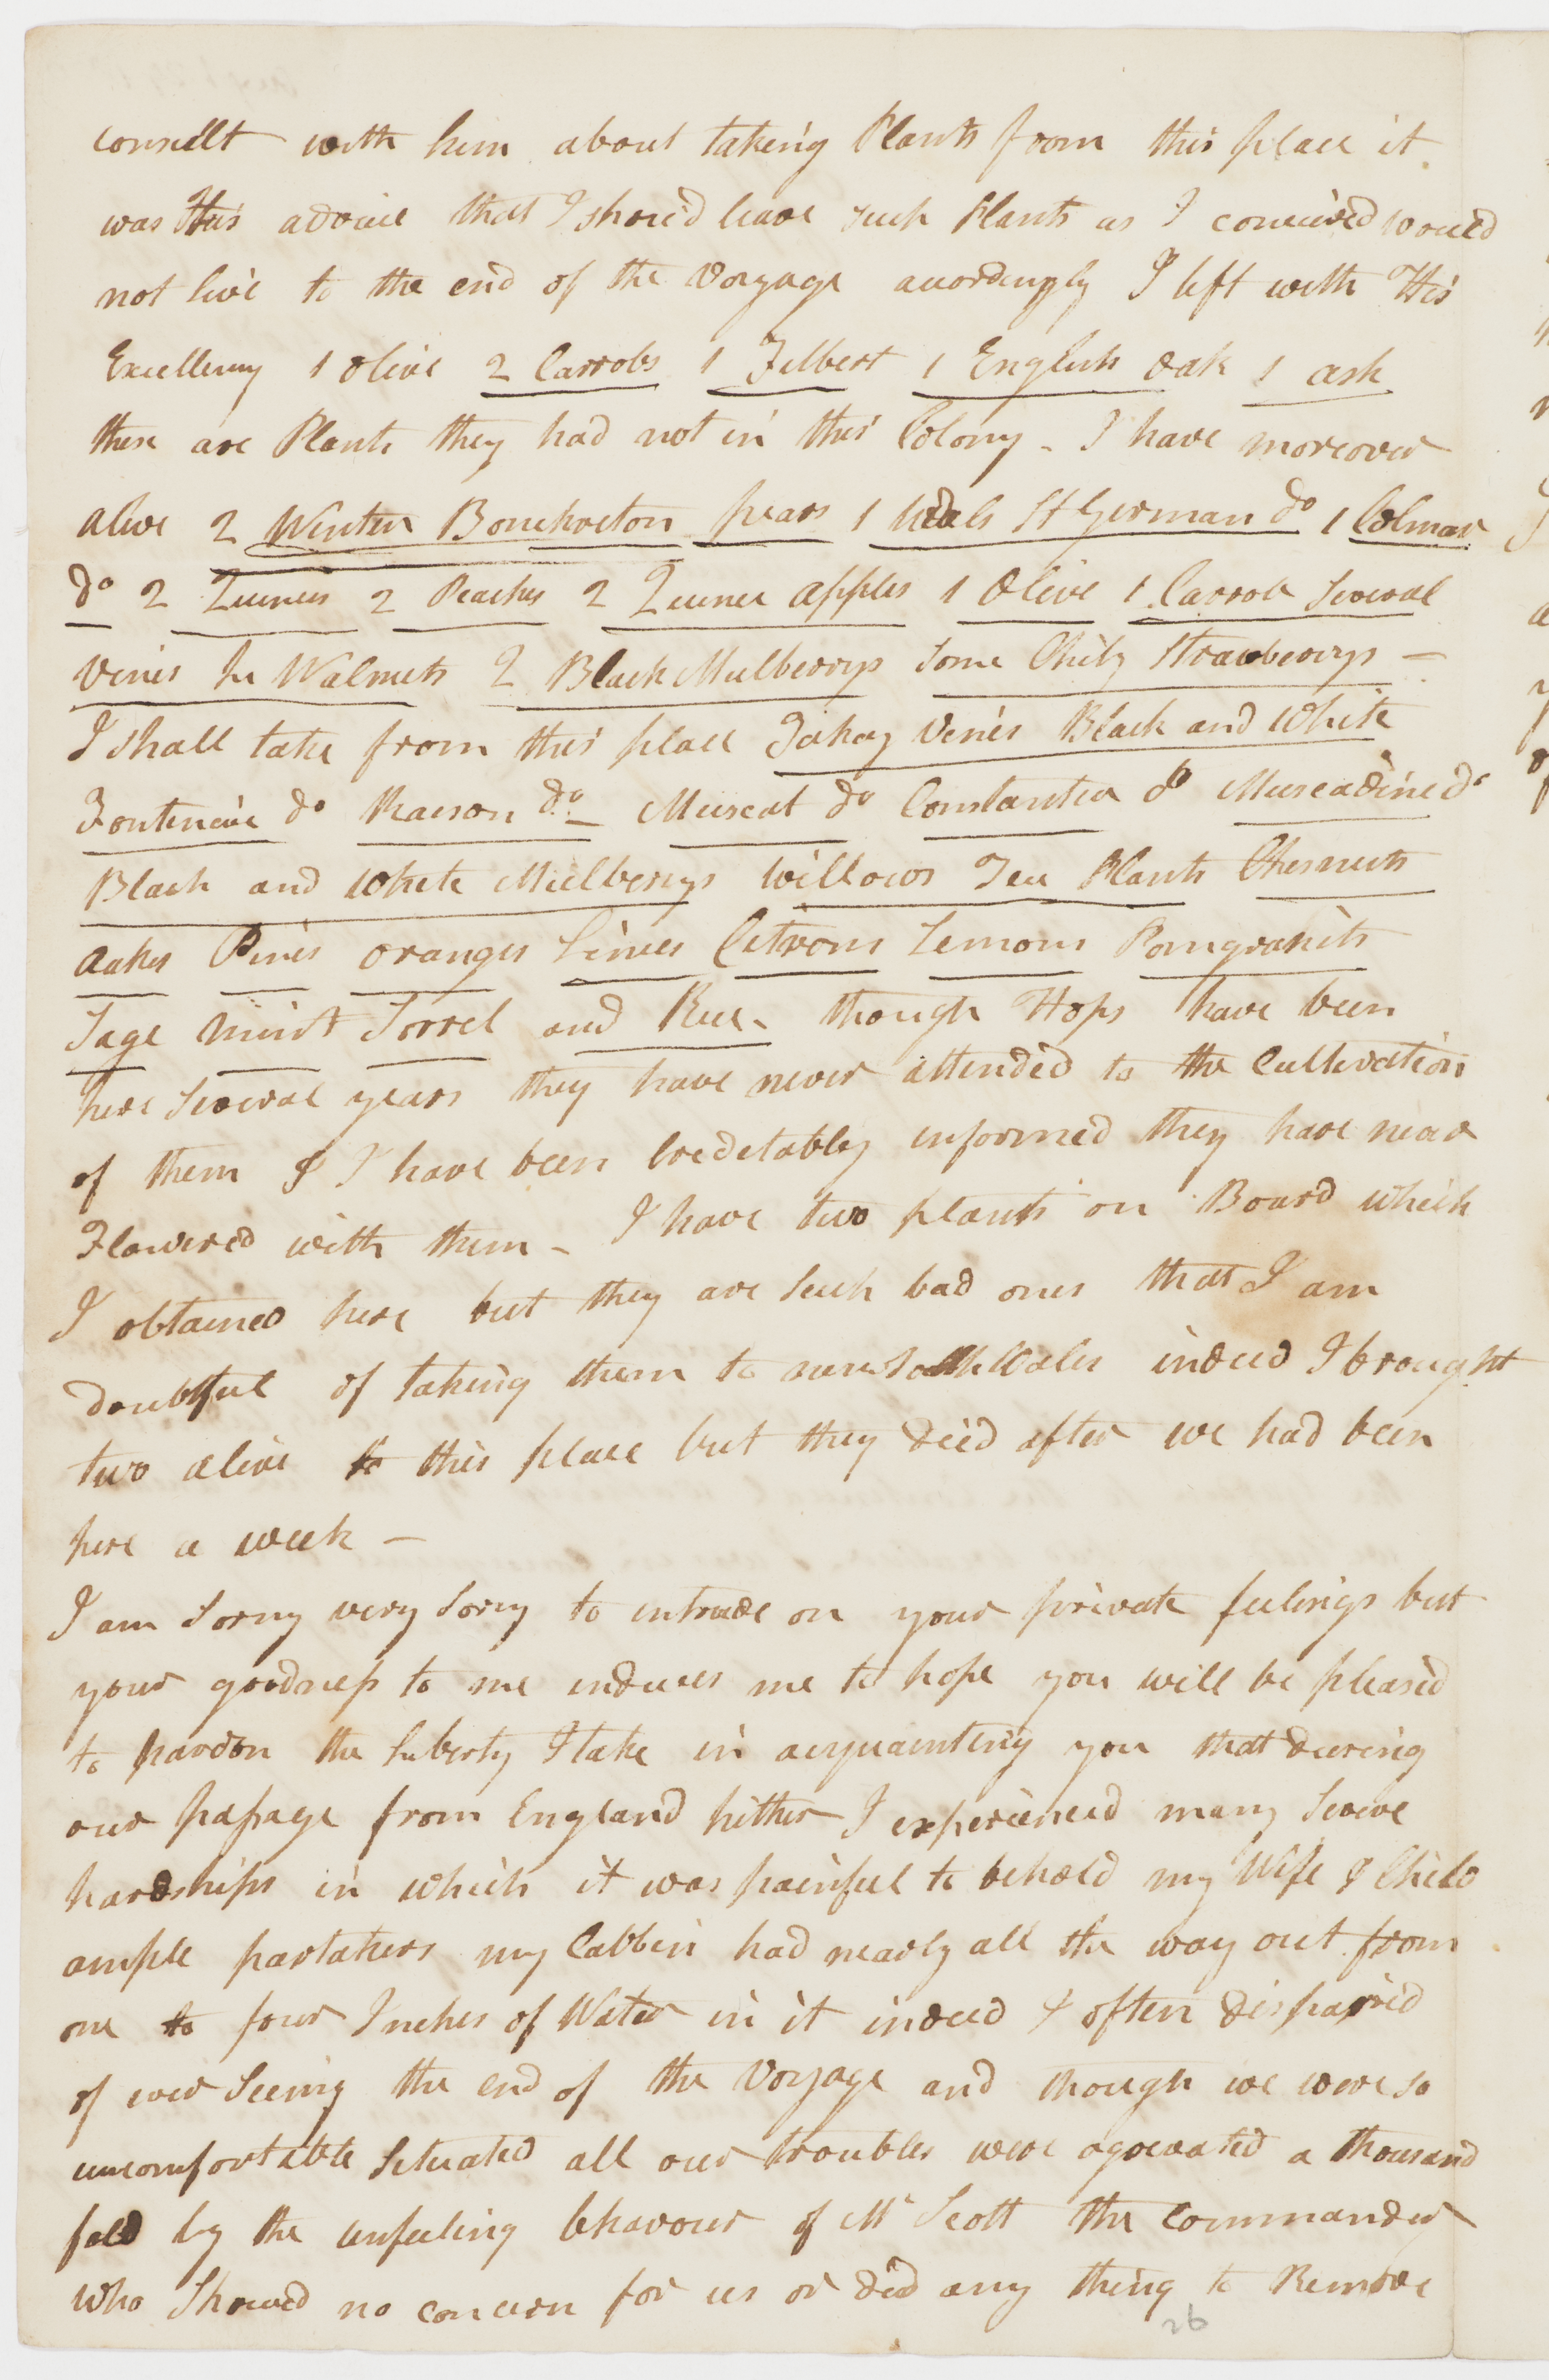 consult with him about taking Plants from this place it
was His advice that I shou'd leave such Plants as I conceived would
not live to the end of the Voyage accordingly I left with His
Excellency 1 Olive 2 Carrobs 1 Filbert 1 English Oak 1 ash
these are Plants they had not in this Colony - I have moreover
alive 2 Winter Bonchreton pears 1 St German do 1 Colmar
do 2 Quinces 2 Peaches 2 Quince apples 1 Olive 1 Carrob Several
Vines Walnuts 2 Black Mulberrys Some Chily Strawberrys -
I shall take from this place Tokay Vines Black and White
Fontenéac do Raison do - Muscat do Constantia do Muscadine do
Black and White Mulberrys Willows Tea Plants Chesnuts
Oakes Pines Oranges Limes Citrons Lemons Pomgranits
Sage Mint Sorrel and Rue - though Hops have been
here Several years they have never attended to the Cultivation
of them & I have been Creditably informed they have never
Flowered with them - I have two plants on Board which
I obtained here but they are Such bad ones that I am
doubtful of taking them to new South Wales indeed I brought
two alive to this place but they died after we had been
here a week -
I am Sorry very Sorry to intrude on your private feelings but
your goodness to me induces me to hope you will be pleased
to pardon the Liberty I take in acquainting you that during
our passage from England hither I experienced many Severe
hardships in which it was painful to behold my Wife & Child
ample partakers my Cabbin had nearly all the way out from
one to four Inches of Water in it indeed I often dispaired
of ever Seeing the end of the Voyage and though we were so
uncomfortable Situated all our troubles were agrevated a thousand
fold by the unfeeling behavour of Mr Scott the Commander
who Showed no concern for us or did any thing to Remove
26